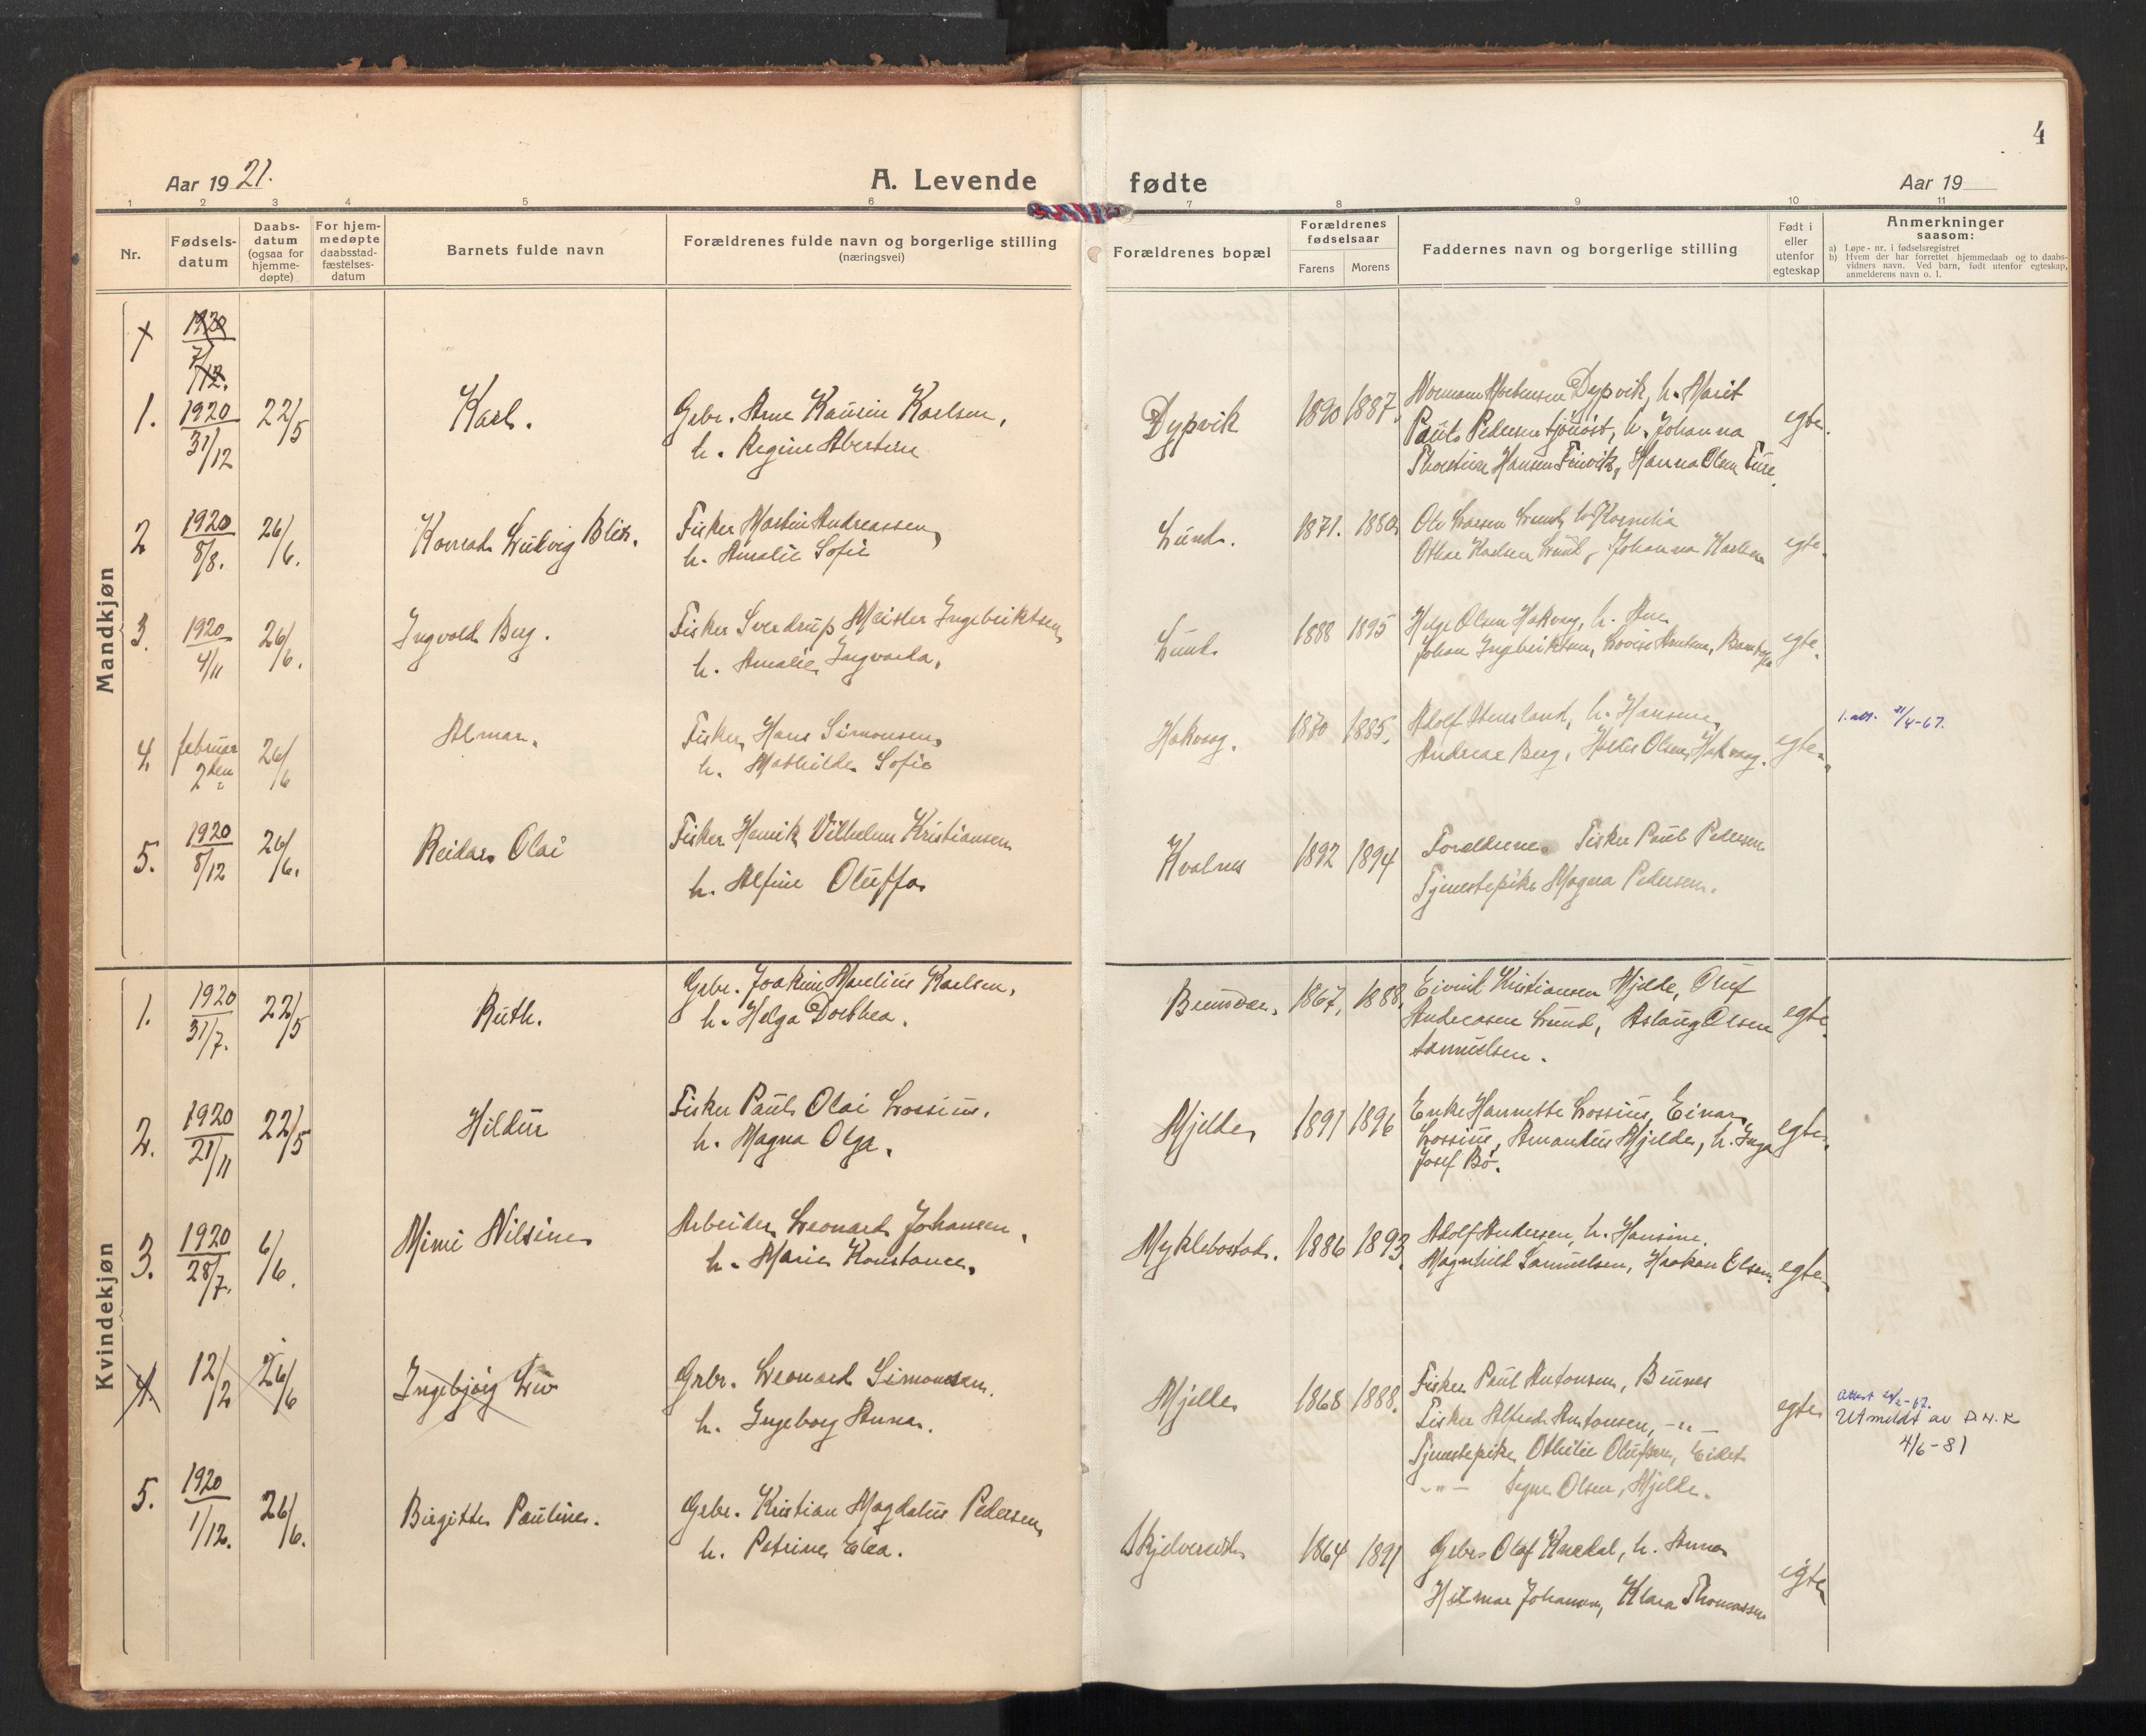 4
Aar 1921.
A. Levende
fødte
Aar 19
1 2 3 4 5 6 7 8 9 10 11
Nr.
Fødsels-
datum
Daabs-
datum
(ogsaa for
hjemme-
døpte)
For hjem-
medøpte
daabsstad-
fæstelses-
datum
Barnets fulde navn
Forældrenes fulde navn og borgerlige stilling
(næringsvei)
Forældrenes bopæl
Forældrenes
fødselsaar
Farens
Morens
Faddernes navn og borgerlige stilling
Født i
eller
utenfor
egteskap
Anmerkninger
saasom:
a) Løpe-nr. i fødselsregistret
b) Hvem der har forrettet hjemmedaab og to daabs-
vidners navn. Ved barn, født utenfor egteskap,
anmelderens navn o. l.
Mandkjøn
1920
7/12.
1. 1920 31/12 22/5 Karl. Gbr. Arne Kausin Karlsen,
h. Regine Albertine
Dypvik 1890 1887.
Normann Mortensen Dypvik, h. Marit
Paul Pedersen, h. Johanna
Hansen Finvik, Hanna Olsen
egte.
2 1920 8/8. 26/6. Konrad Ludvig Blik. Fisker Martin Andreassen,
h. Amalie Sofie
Lund. 1871. 1880
Ole Larsen Lund, h. Kornelia
Othar Karlsen Lund, Johanna Karlsen
egte.
3. 1920 4/11 26/6. Ingvald Berg. Fisker Sverdrup Meisler Ingebriktsen,
h. Amalie Ingvarda.
Lund. 1888 1895
Helge Olsen Hakvag, h. Ane
Johan Ingebriktsen, Lovise Arntsen,
egte.
4. februar 2den 26/6 Almar. Fisker Hans Simonsen,
h. Mathilde Sofie
Hakvag. 1870 1885.
Adolf, h. Hansine,
Andreas Berg, Olsen, Hakvag.
egte.
/4-67.
5. 1920 8/12 26/6. Reidar Olai Fisker Henrik Vilhelm Kristiansen
h. Alfine Oluffa
Kvalnes 1892 1894
Foreldrene. Fisker Paul Pedersen
Tjenestepike Magna Pedersen.
Kvindekjøn
1. 1920 31/7. 22/5 Ruth. Gbr. Joakim Marelius Karlsen,
h. Helga Dorthea.
1867, 1888.
Eivind Kristiansen Mjelde, Oluf
Andreasen Lund, Aslaug Olsen
Samuelsen.
egte.
2. 1920 21/11 22/5 Hildur Fisker Paul Olai Lossius.
h. Magna Olga.
Mjelde 1891 1896
Enke Hannette Lossius, Einar
Lossius, Amandus Mjelde, h. Inga
Josef Bø.
egte.
3. 1920 28/7. 6/6. Mimi Nilsine Arbeider Leonard Johansen,
h. Marie Konstance,
Myklebostad. 1886 1893.
Adolf Andersen, h. Hansine.
Magnhild Samuelsen, Haakon Elsen,
egte
4. 12/2 26/6 Ingebjørg Liv Gbr. Leonard Simonsen.
h. Ingeborg Anna.
Mjelde 1868 1888.
Fisker Paul Antonsen, Bunes
Fisker Alfred Antonsen, -"-
Tjenestepike Othilie Olufsen, Eidet
-"- Signe Olsen, Mjelde.
egte
Utmeldt av D.N.K
4/6-81
5. 1920 1/12. 26/6. Birgitte Pauline. Gbr. Kristian Magdalus Pedersen,
h. Petrine Elea.
1864 1891
Gbr. Olaf, h. Anna
Hilmar Johansen, Klara Thomassen
egte